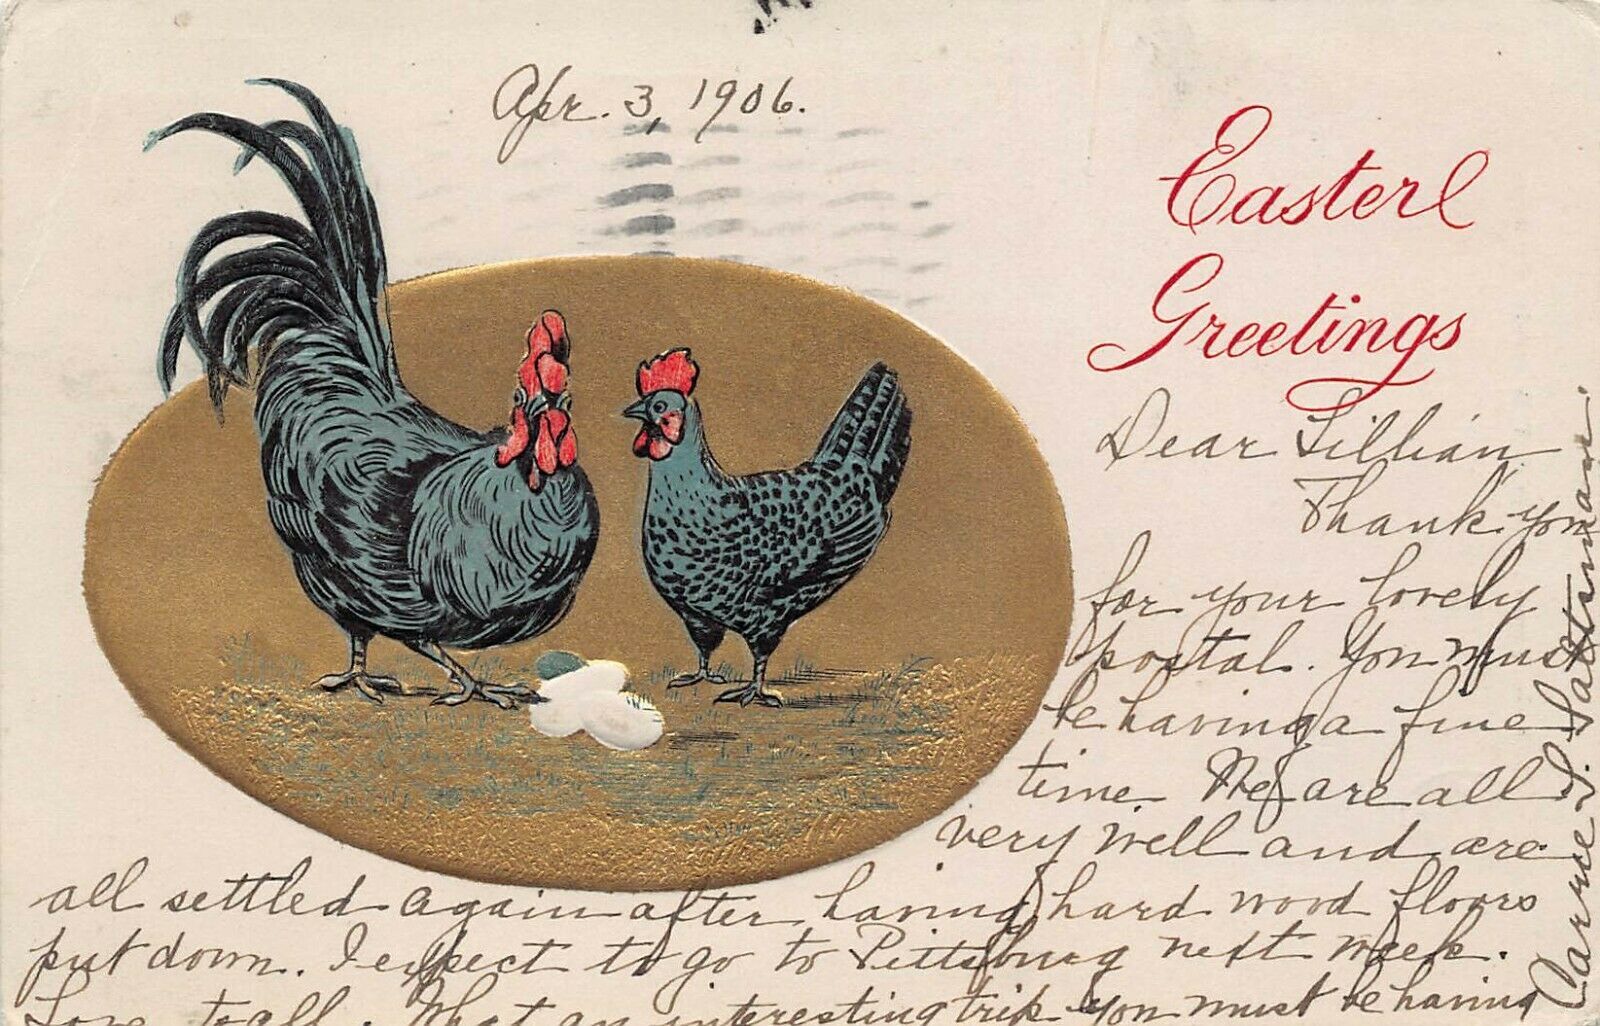 Apr. 3, 1906.
Easter
Greetings
Dear Lillian
Thank you
for your lovely
postal. You must
be having a fine
time. We are all
very well and are
all settled again after having hard wood floors
put down. I expect to go to Pittsburg next week.
Love to all. What an interesting trip you must be having
Carrie S. Saltsman.